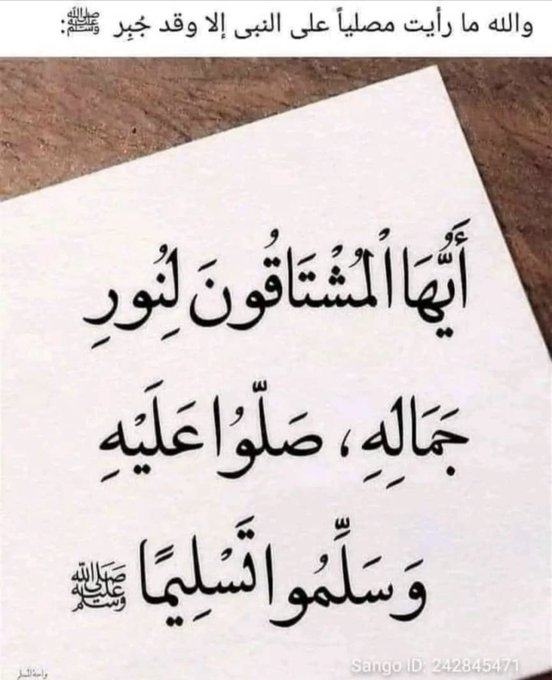 والله ما رأيت مصلياً على النبى إلا وقد جُبِر ﷺ:
أَيُّهَا الْمُشْتَاقُونَ لِنُورِ
جَمَالِهِ، صَلُّوا عَلَيْهِ
وَسَلِّمُوا تَسْلِيمًا ﷺ
Sango ID: 242845471